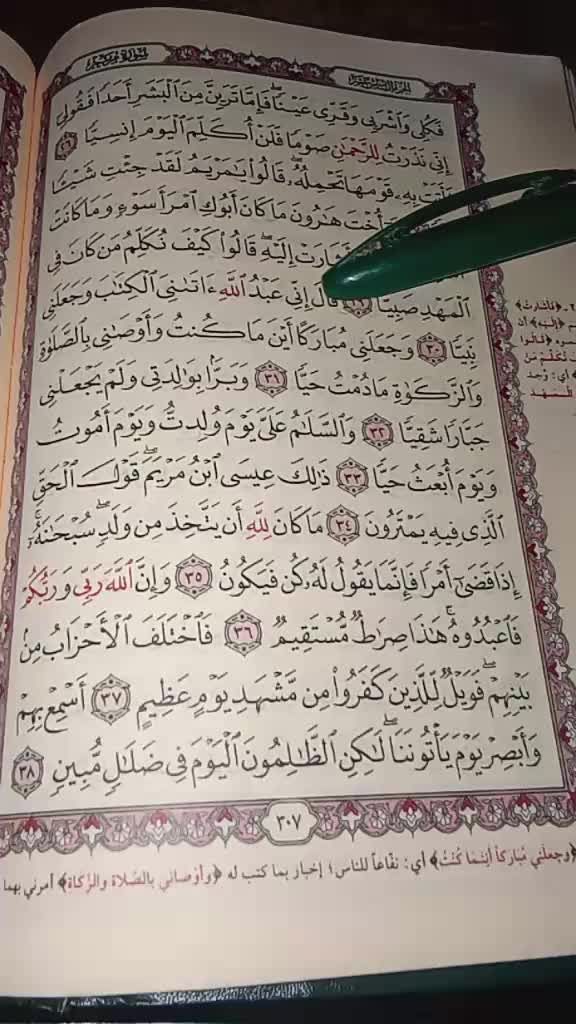 سورة مريم
فَكُلِي وَٱشۡرَبِي وَقَرِّي عَيۡنٗاۖ فَإِمَّا تَرَيِنَّ مِنَ ٱلۡبَشَرِ أَحَدٗا فَقُولِيٓ
إِنِّي نَذَرۡتُ لِلرَّحۡمَٰنِ صَوۡمٗا فَلَنۡ أُكَلِّمَ ٱلۡيَوۡمَ إِنسِيّٗا ٢٦
فَأَتَتۡ بِهِۦ قَوۡمَهَا تَحۡمِلُهُۥۖ قَالُواْ يَٰمَرۡيَمُ لَقَدۡ جِئۡتِ شَيۡـٔٗا
أُخۡتَ هَٰرُونَ مَا كَانَ أَبُوكِ ٱمۡرَأَ سَوۡءٖ وَمَا كَانَتۡ
فَأَشَارَتۡ إِلَيۡهِۖ قَالُواْ كَيۡفَ نُكَلِّمُ مَن كَانَ فِي
ٱلۡمَهۡدِ صَبِيّٗا ٢٩ قَالَ إِنِّي عَبۡدُ ٱللَّهِ ءَاتَىٰنِيَ ٱلۡكِتَٰبَ وَجَعَلَنِي
نَبِيّٗا ٣٠ وَجَعَلَنِي مُبَارَكًا أَيۡنَ مَا كُنتُ وَأَوۡصَٰنِي بِٱلصَّلَوٰةِ
وَٱلزَّكَوٰةِ مَا دُمۡتُ حَيّٗا ٣١ وَبَرَّۢا بِوَٰلِدَتِي وَلَمۡ يَجۡعَلۡنِي
جَبَّارٗا شَقِيّٗا ٣٢ وَٱلسَّلَٰمُ عَلَيَّ يَوۡمَ وُلِدتُّ وَيَوۡمَ أَمُوتُ
وَيَوۡمَ أُبۡعَثُ حَيّٗا ٣٣ ذَٰلِكَ عِيسَى ٱبۡنُ مَرۡيَمَۖ قَوۡلَ ٱلۡحَقِّ
ٱلَّذِي فِيهِ يَمۡتَرُونَ ٣٤ مَا كَانَ لِلَّهِ أَن يَتَّخِذَ مِن وَلَدٖۖ سُبۡحَٰنَهُۥٓۚ
إِذَا قَضَىٰٓ أَمۡرٗا فَإِنَّمَا يَقُولُ لَهُۥ كُن فَيَكُونُ ٣٥ وَإِنَّ ٱللَّهَ رَبِّي وَرَبُّكُمۡ
فَٱعۡبُدُوهُۚ هَٰذَا صِرَٰطٞ مُّسۡتَقِيمٞ ٣٦ فَٱخۡتَلَفَ ٱلۡأَحۡزَابُ مِنۢ
بَيۡنِهِمۡۖ فَوَيۡلٞ لِّلَّذِينَ كَفَرُواْ مِن مَّشۡهَدِ يَوۡمٍ عَظِيمٍ ٣٧ أَسۡمِعۡ بِهِمۡ
وَأَبۡصِرۡ يَوۡمَ يَأۡتُونَنَا لَٰكِنِ ٱلظَّٰلِمُونَ ٱلۡيَوۡمَ فِي ضَلَٰلٖ مُّبِينٖ ٣٨
٣٠٧
﴿وجعلني مُبَاركاً أَيْنَما كُنْتُ﴾ أي: نفّاعاً للناس؛ إخبار بما كتب له ﴿وأوْصاني بالصَّلاة والزَّكاة﴾ أمرني بهما